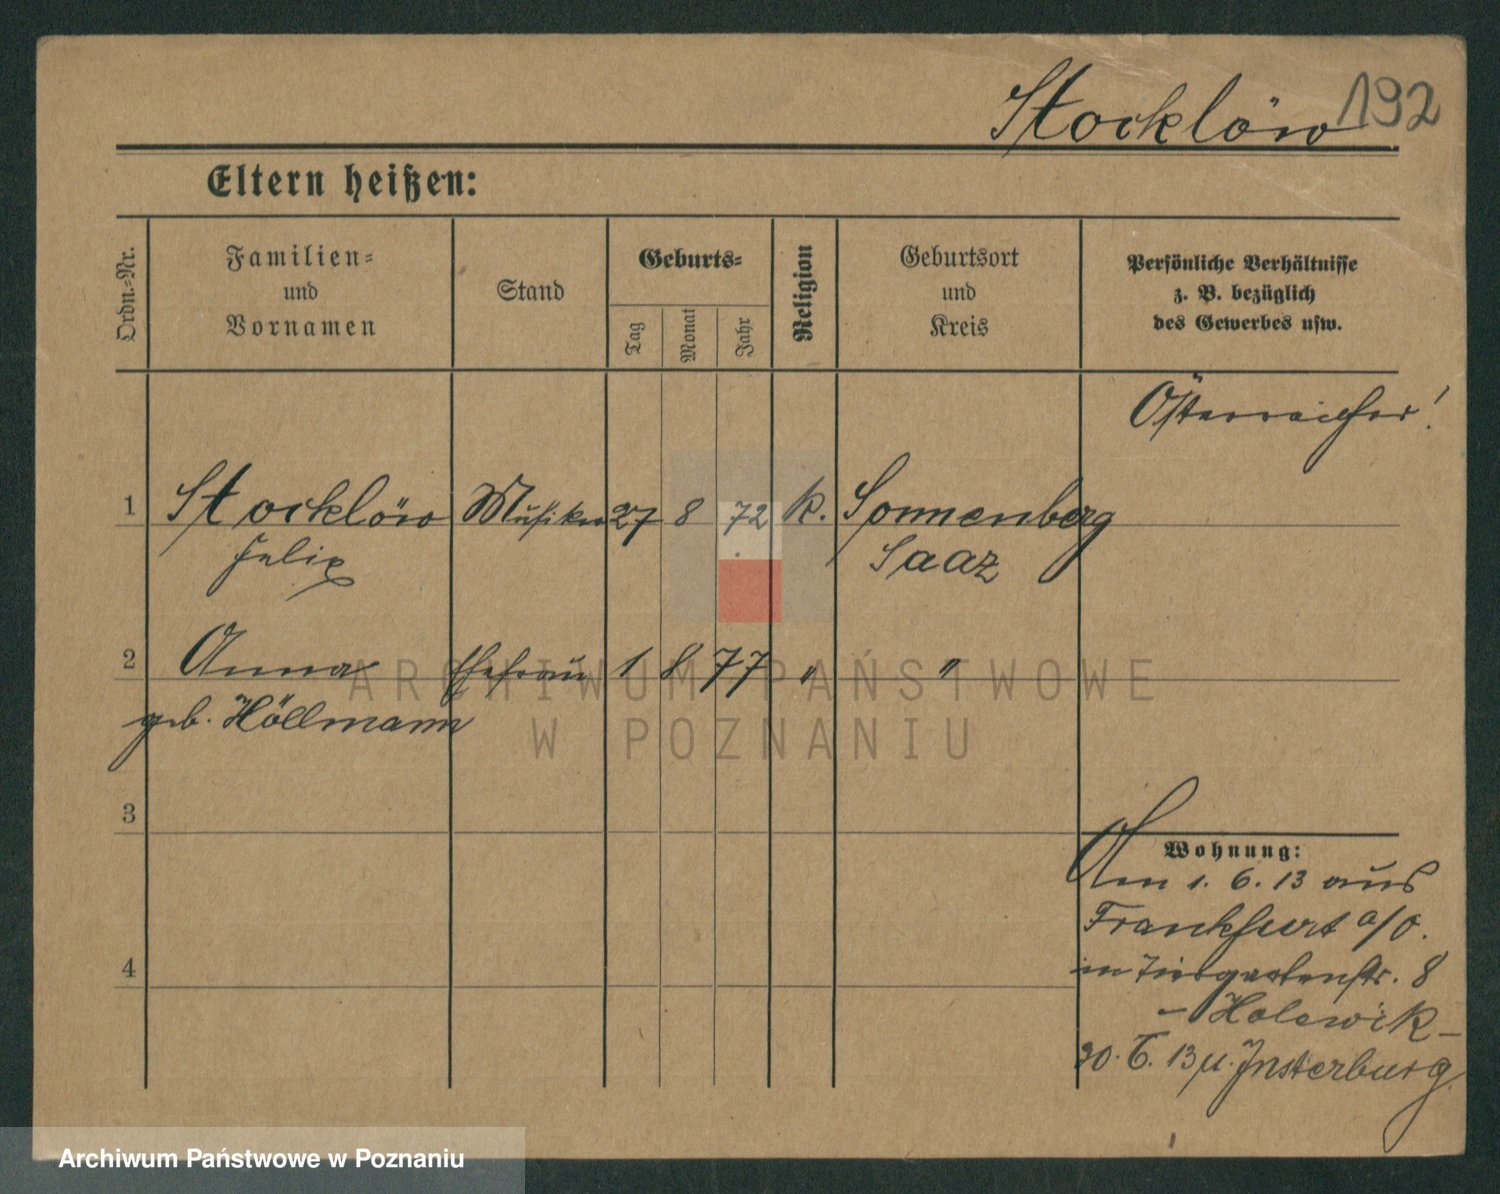 Stocklöw 192
Eltern heißen:
Ordn.-Nr.
Familien-
und
Vornamen
Stand
Geburts-
Tag
Monat
Jahr
Religion
Geburtsort
und
Kreis
Persönliche Verhältnisse
z. B. bezüglich
des Gewerbes usw.
Österreicher!
1 Stocklöw Musiker 27 8 72 k. Sonnenberg
Felix Saaz
2 Anna Ehefrau 1 8 77 " "
geb. Höllmann
3
Wohnung:
Am 1. 6. 13 aus
Frankfurt a/O.
4
in Tiergartenstr. 8
- Holewik -
30. 6. 13 n. Insterburg.
ARCHIWUM PAŃSTWOWE
W POZNANIU
Archiwum Państwowe w Poznaniu